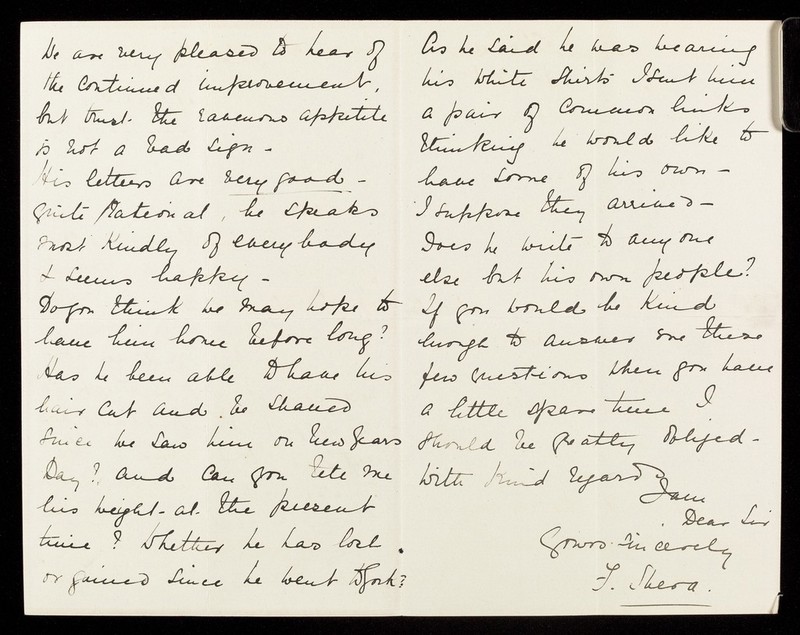 We are very pleased to hear of
the continued improvement,
but trust the ravenous appetite
is not a bad sign -
His letters are very good -
quite rational, he speaks
most kindly of everybody
& seems happy -
Do you think we may hope to
have him home before long?
Has he been able to have his
hair cut and be shaved
since we saw him on New Years
Day? and can you tell me
his weight at the present
time? Whether he has lost
or gained since he went to York?
As he said he was wearing
his white shirts I sent him
a pair of common links
thinking he would like to
have some of his own -
I suppose they arrived -
Does he write to any one
else but his own people?
If you would be kind
enough to answer me these
few questions when you have
a little spare time I
should be greatly obliged -
With kind regards
I am
Dear Sir
Yours sincerely